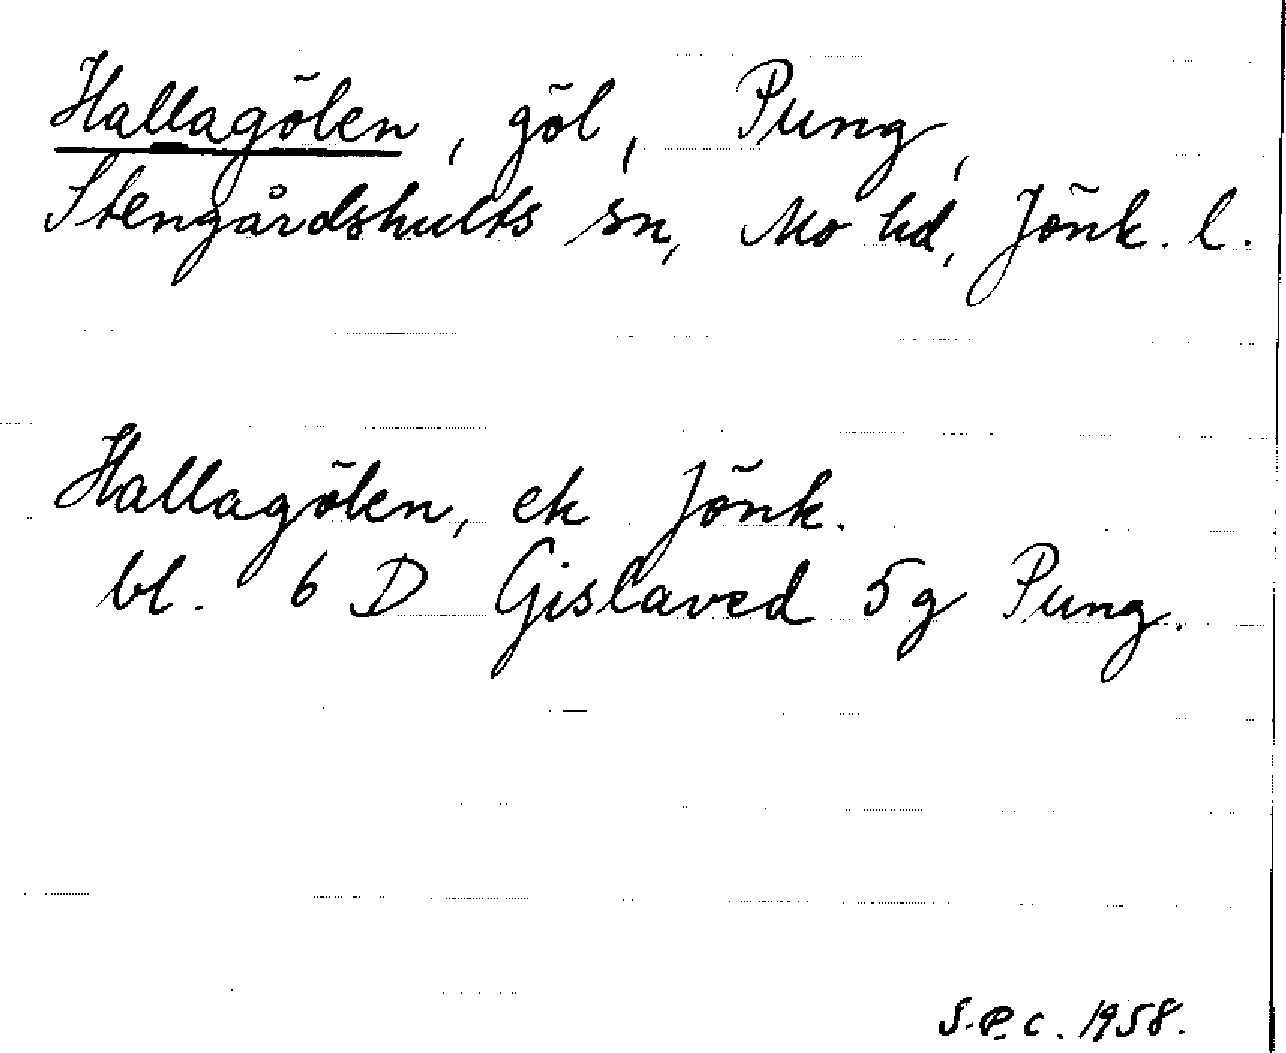 Hallagölen, göl, Pung,
Stengårdshults sn, Mo hd, Jönk. l.
Hallagölen, ek Jönk.
bl. 6 D Gislaved 5g Pung.
S.P.C. 1958.